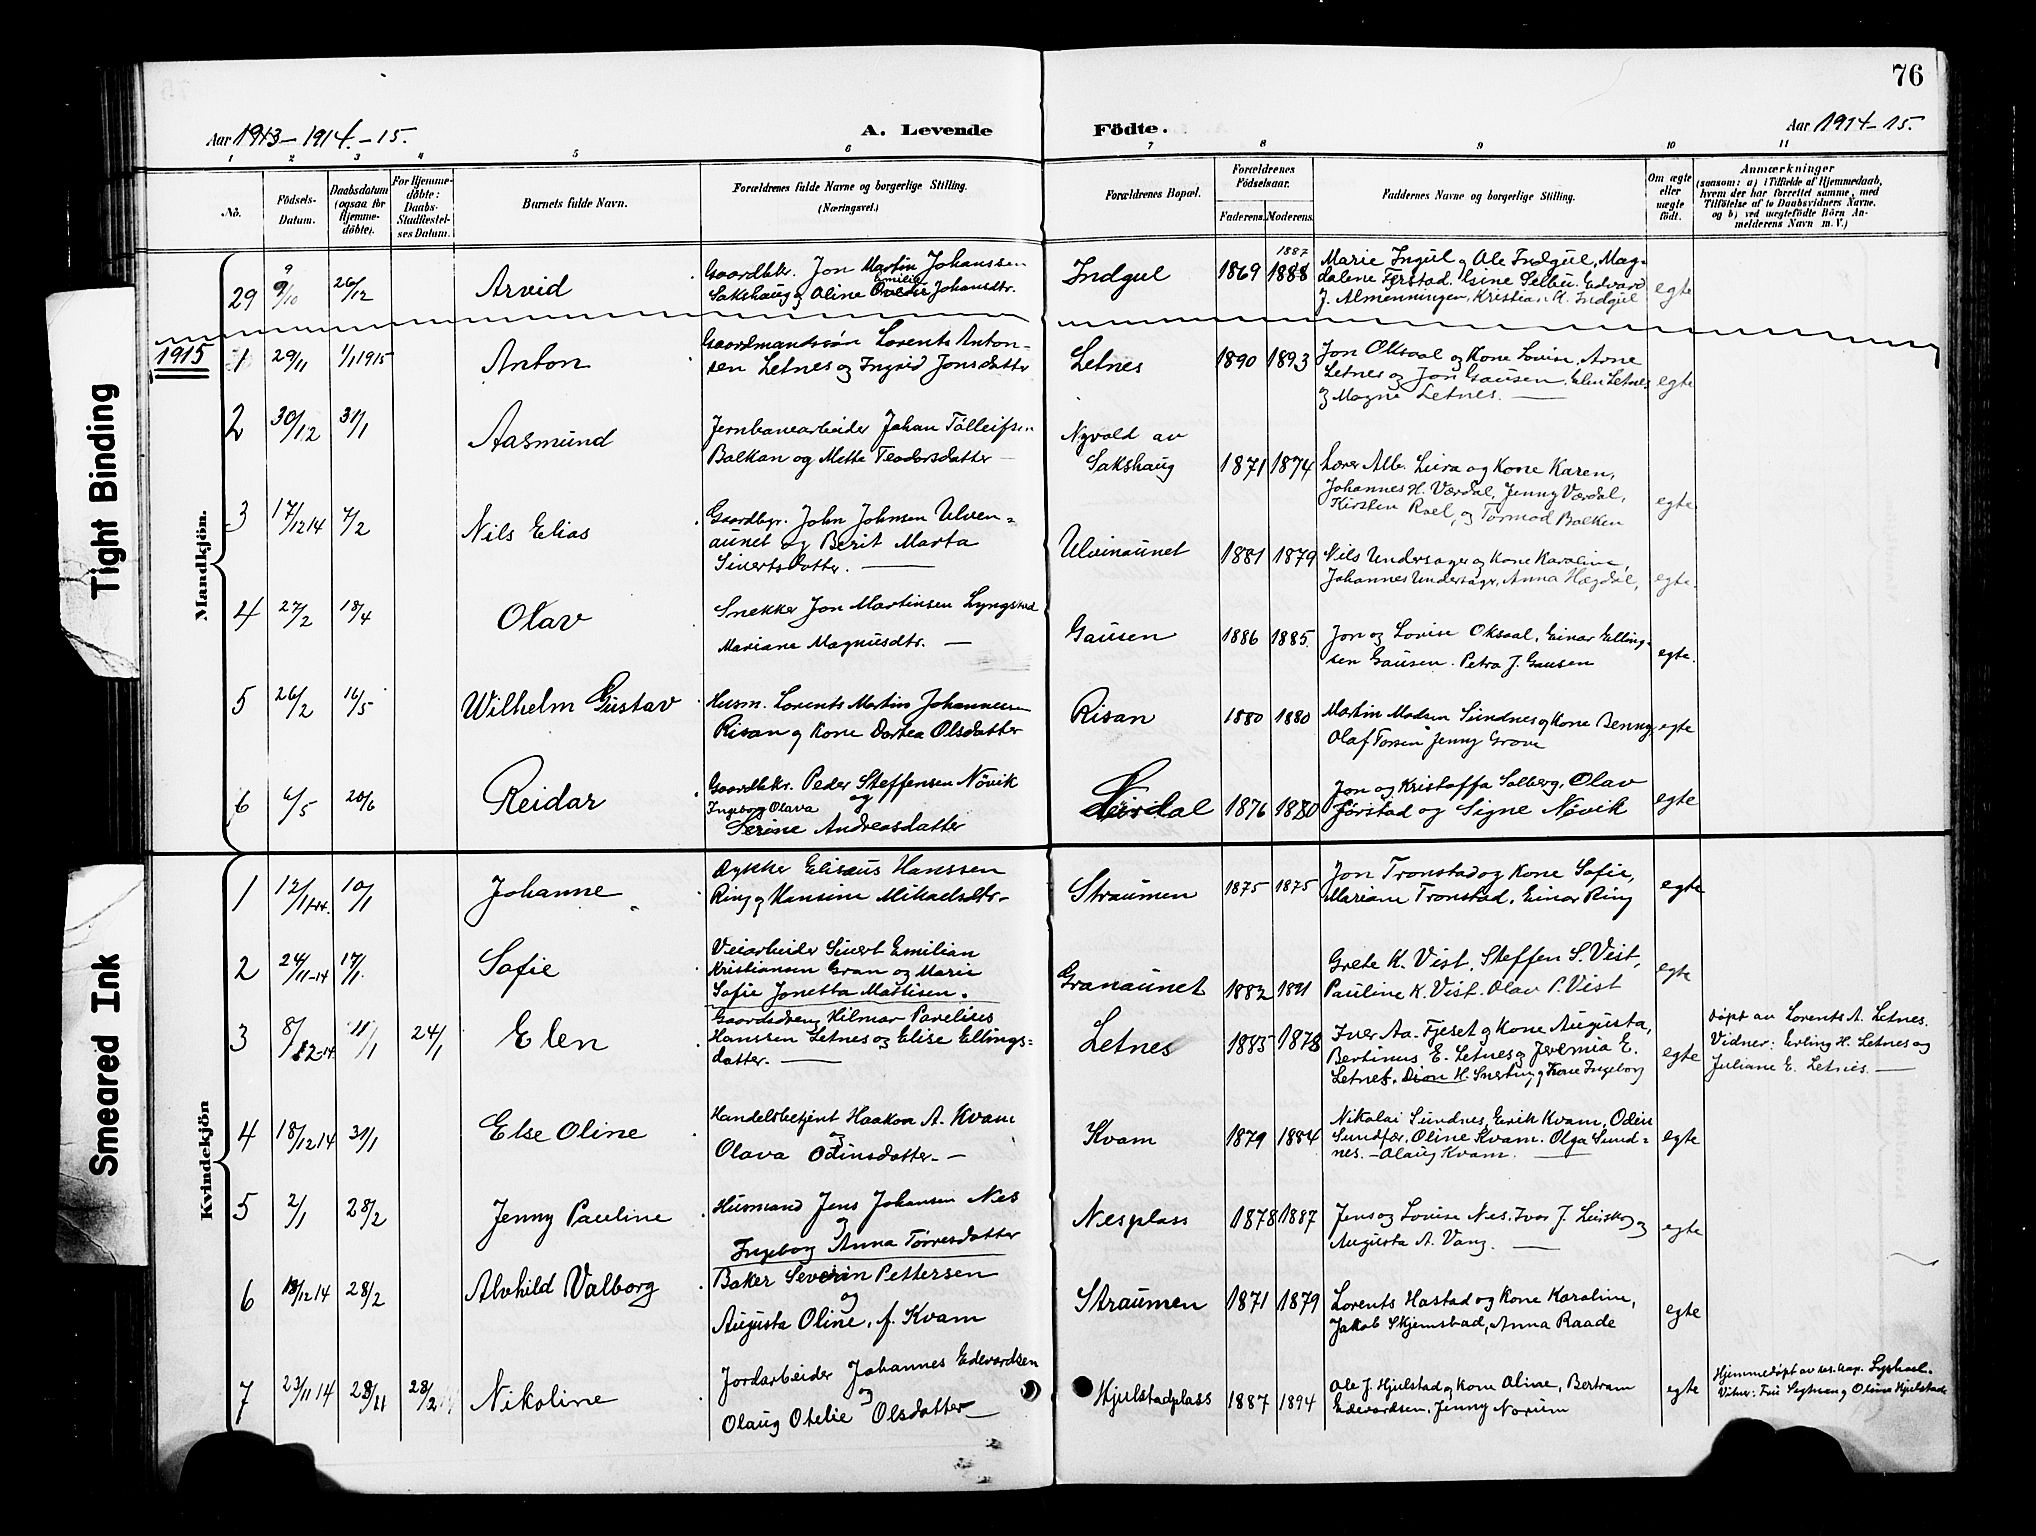 76
Aar 1913-1914.-15.
A. Levende Födte.
Aar 1914-15.
1 2 3 4 5 6 7 8 9 10 11
No.
Födsels-Datum.
Daabsdatum (ogsaa for Hjemmedöbte).
For Hjemmedöbte: Daabs-Stadfæstelses Datum.
Barnets fulde Navn.
Forældrenes fulde Navne og borgerlige Stilling.
(Næringsvei.)
Forældrenes Bopæl.
Forældrenes Födselsaar.
Faderens. Moderens.
Faddernes Navne og borgerlige Stilling.
Om ægte eller uægte födt.
Anmærkninger
(saasom: a) i Tilfælde af Hjemmedaab,
hvem der har forrettet samme, med
Tilföielse af to Daabsvidners Navne.
og b) ved uægtefödte Börn Anmelderens Navn m. V.)
Tight Binding
Smeared Ink
Mandkjön.
29 9/10 26/12 Arvid
Gaardbkr. Jon Martin Johanssen
Sakshaug og Aline Emilie Johansdtr.
Indgul 1869 1887
Marie Ingul og Ole Indgul, Mag-
dalene Fjerstad. Gine Selbu. Edvard
J. Almenningen, Kristian M. Indgul
egte
1915
1 29/11 1/1 1915 Anton
Gaardmandssøn Lorents Anton-
sen Letnes og Ingrid Jonsdatter
Letnes 1890 1893
Jon Oksaal og Kone Lovise, Arne
Letnes og Jon Gausen, Elen Letnes
og Magne Letnes.
egte
2 30/12 31/1 Aasmund
Jernbanearbeider Johan Tølleifsen
Balkan og Mette Teodorsdatter
Nyvold av
Sakshaug 1871 1874
Lærer Alb. Lura og Kone Karen,
Johannes H. Værdal, Jenny Værdal,
Kirsten Roel, og Tormod Balken
egte
3 17/12 14 7/2 Nils Elias
Gaardbgr. John Johnsen Ulven-
aunet og Berit Marta
Siuertsdatter.
Ulvinaunet 1881 1879
Nils Undersager og Kone Karoline,
Johannes Undersager, Anna Hægdal,
egte.
4 27/2 18/4 Olav
Snekker Jon Martinsen Lyngstad
Mariane Magnusdtr.
Gausen 1886 1885.
Jon og Lovise Oksaal, Einar Elling-
sen Gausen. Petra J. Gausen
egte.
5 26/2 16/5 Wilhelm Gustav
Husm. Lorents Martin Johannesen
Risan og Kone Dortea Olsdatter
Risan 1880 1880
Martin Madsen Sundnes og Kone Benny
Olaf Torsen Jenny Grove
egte
6 6/5 20/6 Reidar
Gaardbkr. Peder Steffensen Nøvik
og
Ingeborg Olava
Serine Andreasdatter
1876 1880
Jon og Kristoffa Solberg, Olav
Jørstad og Signe Nøvik
egte
Kvindekjön
1 12/11-14. 10/1 Johanne
Dykker Elisæus Hanssen
Ring og Hansine Mikaelsdtr.
Straumen 1875 1875
Jon Tronstad og Kone Sofie,
Mariane Tronstad, Einar Ring
egte
2 24/11-14 17/1. Sofie
Veiarbeider Siuert Emilian
Kristiansen Gran og Marie
Sofie Jonetta Mattisen.
Granaunet 1882 1891
Grete K. Vist, Steffen S. Vist,
Pauline K. Vist. Olav P. Vist
egte
3 8/12-14 11/1 24/1 Elen
Gaardsdreng Hilmar Pavelius
Hanssen Letnes og Elise Ellings-
datter.
Letnes 1885 1878
Iver Aa. Fjeset og Kone Augusta,
Bertinus E. Letnes og Jeremia E.
Letnes. Dion H. Snerting og Kone Ingeborg
egte
Døpt av Lorents A. Letnes.
Vidner: Erling H. Letnes og
Juliane E. Letnes.
4 18/12 14 31/1 Else Oline
Handelsbetjent Haakon A. Kvam
og
Olava Odinsdatter.
Kvam 1879 1884
Nikolai Sundnes, Eirik Kvam, Odin
Sundfær, Oline Kvam. Olga Sund-
nes. - Olaug Kvam.
egte
5 2/1 28/2 Jenny Pauline
Husmand Jens Johansen Nes
og
Ingeborg Anna Tørresdatter
Nesplass 1878 1887
Jens og Lovise Nes, Ivar J. og
Augusta A. Vang.
egte
6 18/12 14 28/2 Alvhild Valborg
Baker Severin Pettersen
og
Augusta Oline, f. Kvam
Straumen 1871 1879
Lorents Hastad og Kone Karoline,
Jakob Skjemstad, Anna Raade
egte
7 23/11 14 28/11 28/2 Nikoline
Jordarbeider Johannes Edevardsen
og
Olaug Otelie Olsdatter
Hjulstadplass 1887 1894
Ole J. Hjulstad og Kone Oline, Bertram
Edevardsen, Jenny Norum
egte
Hjemmedøpt av res. kap.
Vitner: Fru og Oline Hjulstad